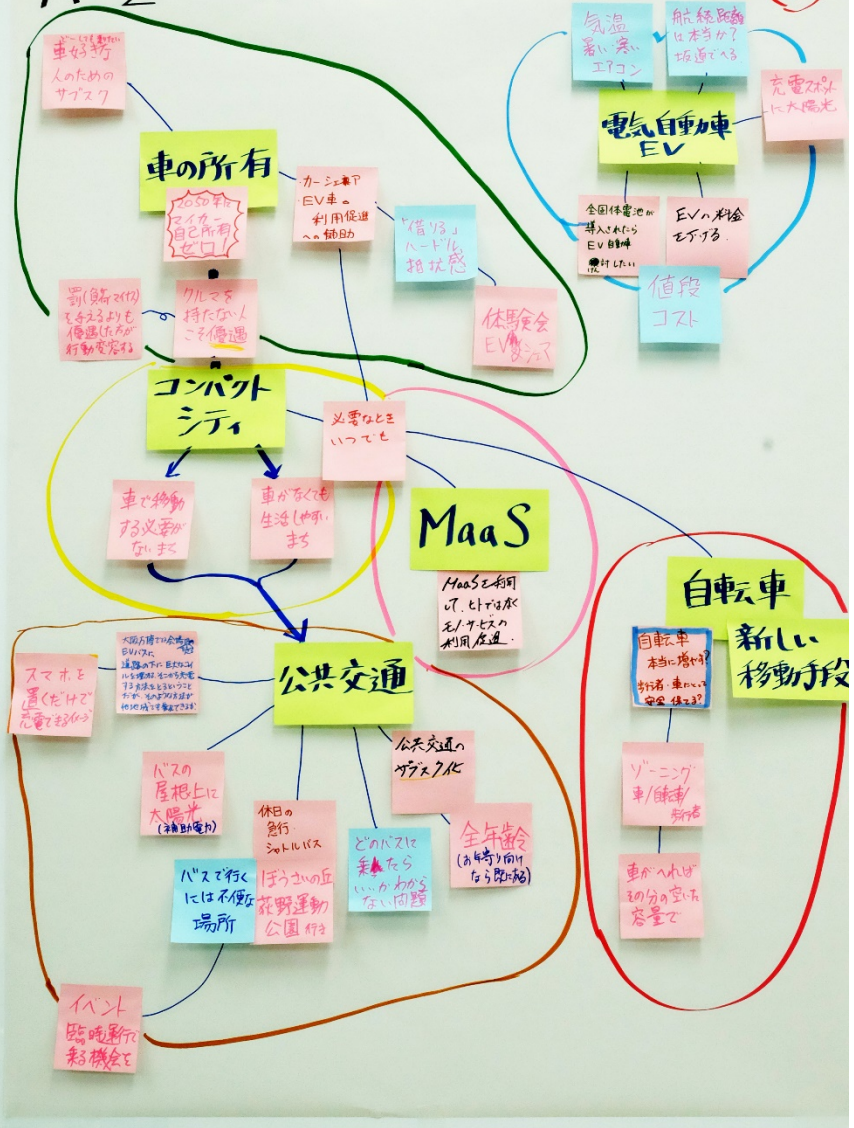 車好きな
人のための
サブスク
車の所有
2050年に
マイカー
自己所有
ゼロ!
カーシェア
EV車の
利用促進
への補助
「借りる」
ハードル
抵抗感
体験会
EV シェア
罰(負荷マイナス)
を与えるよりも
優遇した方が
行動変容する
クルマを
持たない人
こそ優遇
気温
暑い寒い
エアコン
航続距離
は本当か?
坂道でへる
充電スポット
に太陽光
電気自動車
EV
全固体電池が
導入されたら
EV自動車
検討したい
EVの料金
を下げる.
値段
コスト
コンパクト
シティ
必要なとき
いつでも
車で移動
する必要が
ないまち
車がなくても
生活しやすい
まち
MaaS
MaaSを利用
して、ヒトではなく
モノ・サービスの
利用促進.
自転車
新しい
移動手段
自転車
本当に増やす?
歩行者・車にとって
安全保てる?
ゾーニング
車/自転車/
歩行者
車がへれば
その分の空いた
容量で
公共交通
スマホを
置くだけで
充電できるイメージ
大阪万博では会場
EVバスに
道路の下に巨大なコイ
ルを埋め、そこから充電
する方法をとるということ
だが、そのような方法が
バスの
屋根上に
太陽光
(補助電力)
休日の
急行・
シャトルバス
ぼうさいの丘
荻野運動
公園 行き
バスで行く
には不便な
場所
どのバスに
乗ったら
いいかわから
ない問題
公共交通の
サブスク化
全年齢
(お年寄り向け
なら既にある)
イベント
臨時運行で
乗る機会を